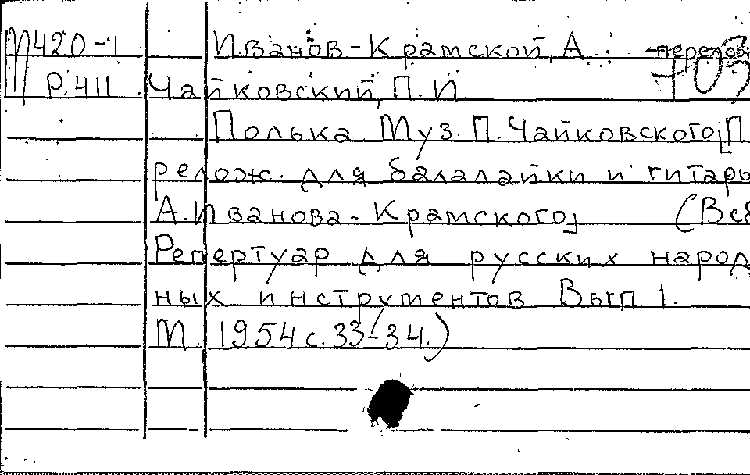 М420-1 Иванов-Крамской, А.
Р.411 Чайковский, П.И 703
Полька Муз. П. Чайковского [П
релож. для балалайки и гитары
А.Иванова-Крамского] (В сб
Репертуар для русских народ
ных инструментов Вып 1.
М 1954 с. 33-34.)